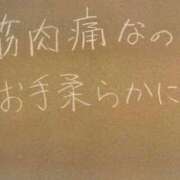 筋肉痛なの
お手柔らかに